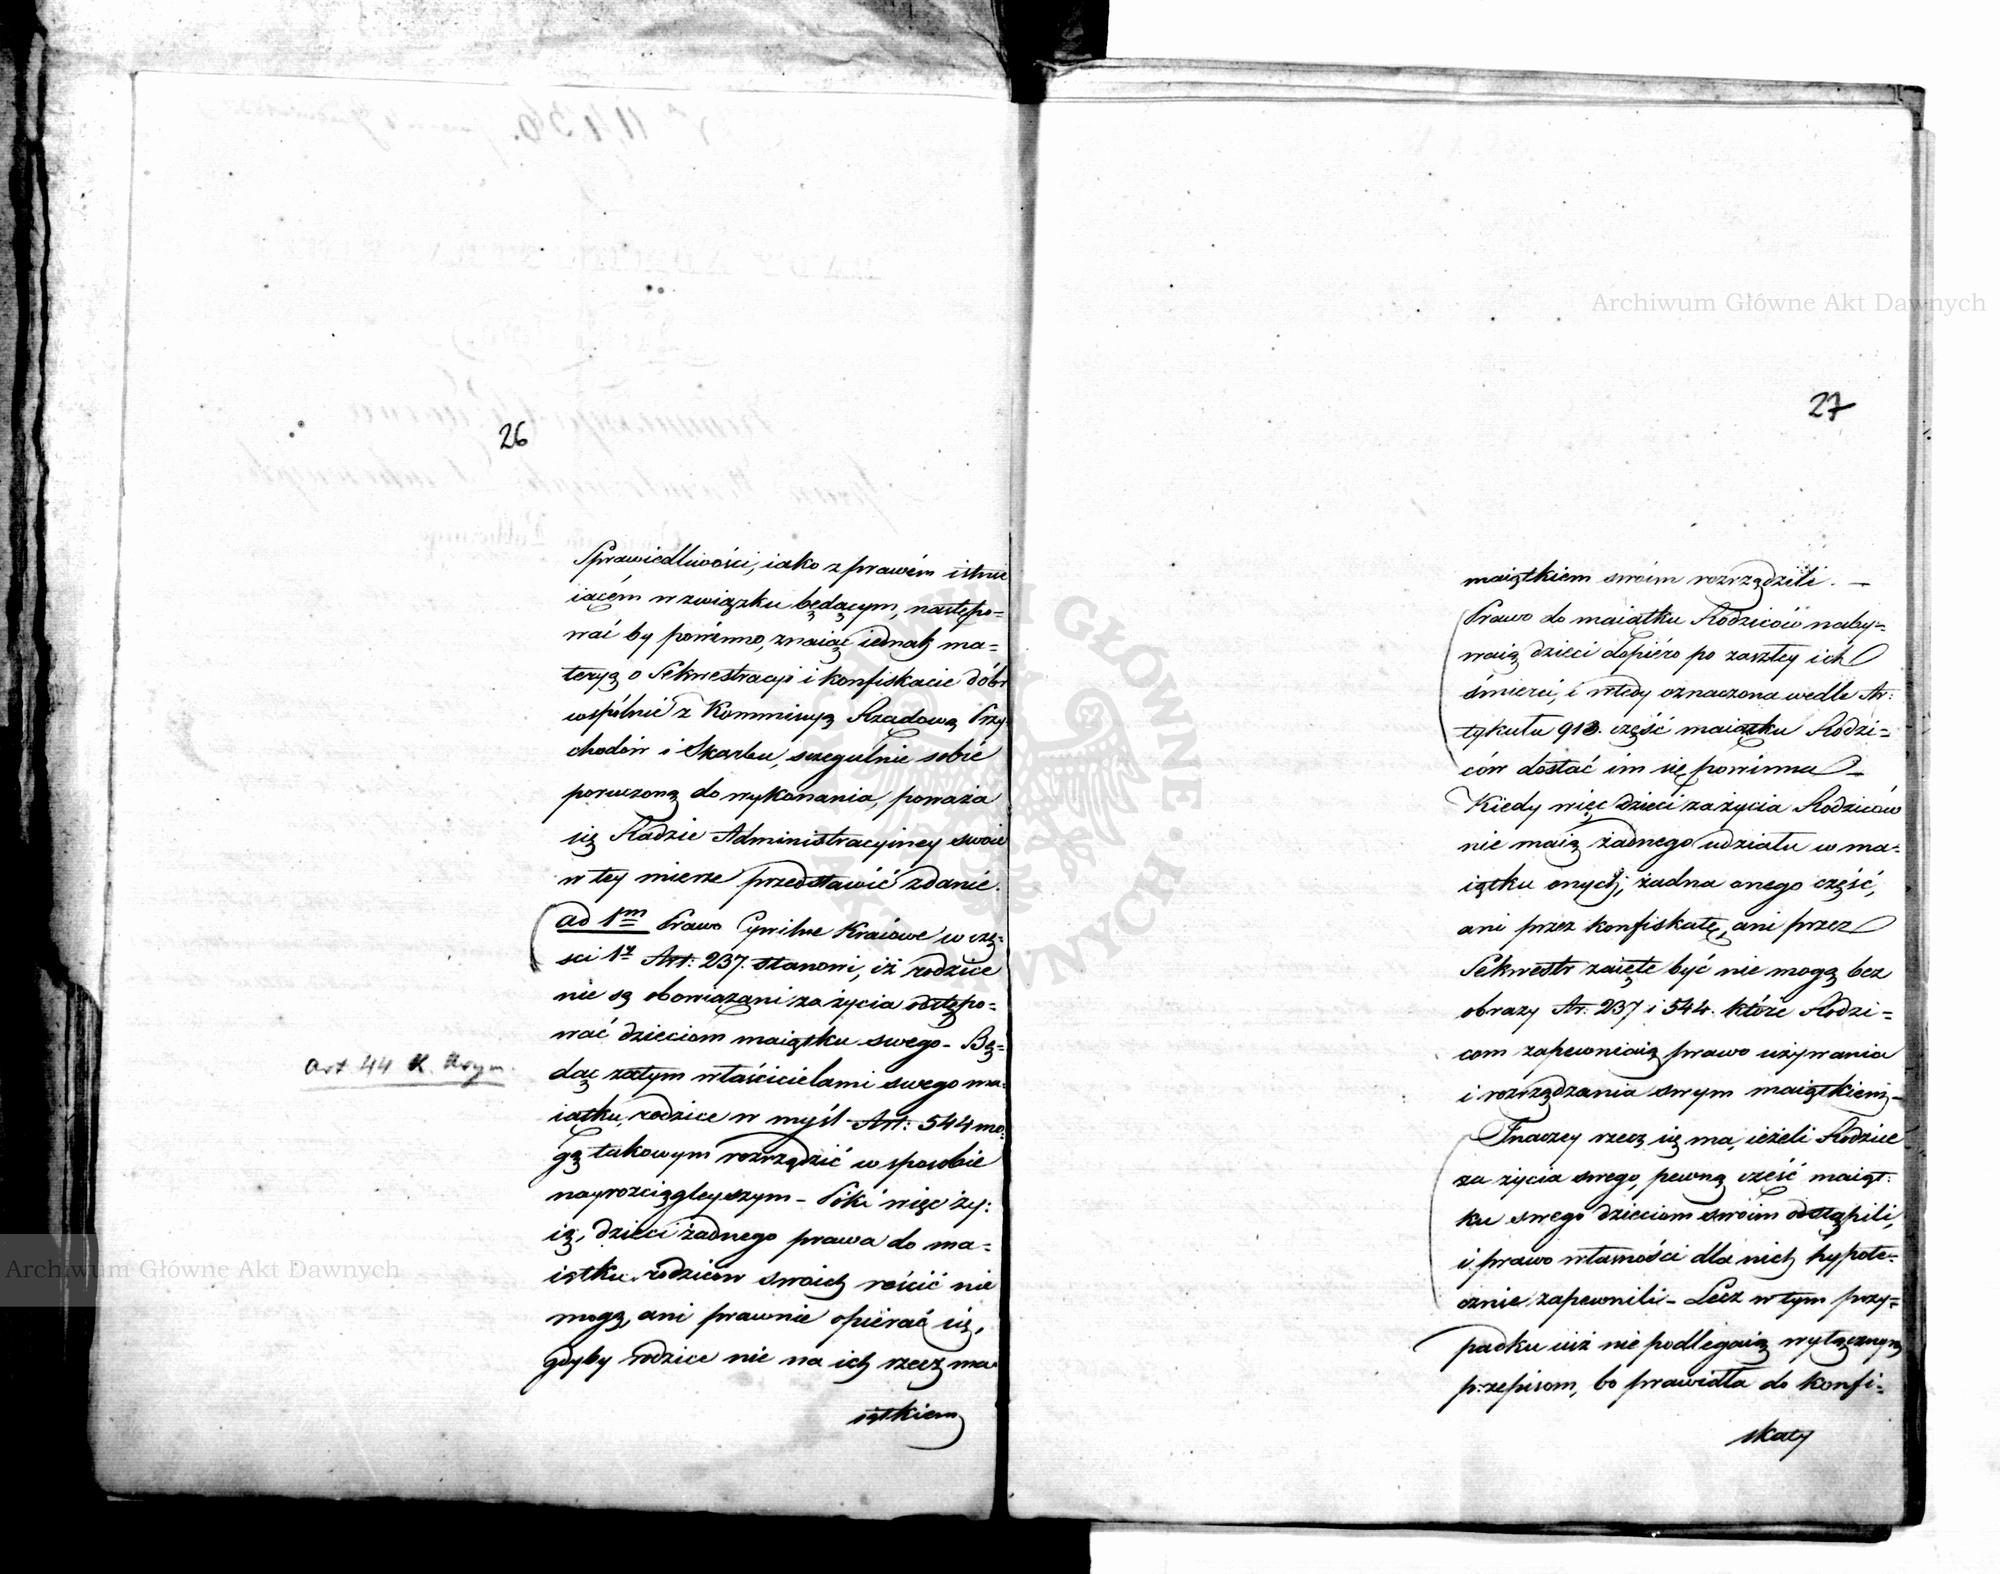 26
Sprawiedliwości, iako z prawém istnie
iącém w związku będącym, nastẹpo=
wać by powinno, znaiąc iednak ma=
teryą o Sekwestracyi i konfiskacie dóbr
wspólnie z Kommissyą Rządową Przy
chodów i Skarbu, szczegulnie sobie
poruczoną do wykonania, poważa
się Radzie Administracyiney swoie
w tey mierze przedstawić zdanie.
ad 1m Prawo Cywilne Kraiowe w czę=
sci 1y Art: 237. stanowi, iż rodzice
nie są obowiązani za życia odstępo=
wać dzieciom maiątku swego - Bę=
dąc zatym właścicielami swego ma=
iątku, rodzice w myśl Art: 544 mo=
gą takowym rozrządzić w sposobie
nayrozciągleyszym - Póki więc ży:
ią, dzieci żadnego prawa do ma=
iątku rodziców swoich rościć nie
mogą, ani prawnie opierać się,
gdyby rodzice nie na ich rzecz ma
iątkiem
Art 44 K. Krym.
27
maiątkiem swoim rozrządzili. —
Prawo do maiątku Rodziców naby=
waią dzieci dopiéro po zaszłey ich
śmierci, i wtedy oznaczona wedle Ar:
tykułu 913. część maiątku Rodzi=
ców dostać im się powinna —
Kiedy więc dzieci za życia Rodziców
nie maią żadnego udziału w ma=
iątku onych, żadna onego część,
ani przez konfiskatę, ani przez
Sekwestr zaięte być nie mogą bez
obrazy Ar: 237 i 544. które Rodzi=
com zapewniaią prawo używania
i rozrządzania swym maiątkiem –
Inaczey rzecz się ma, ieżeli Rodzice
za życia swego, pewną część maiąt:
ku swego dzieciom swoim odstąpili,
i prawo własności dla nich hypote=
cznie zapewnili - Lecz w tym przy=
padku iuż nie podlegaią wyłącznym
przepisom, bo prawidła do konfi=
skaty
Archiwum Główne Akt Dawnych
Archiwum Główne Akt Dawnych